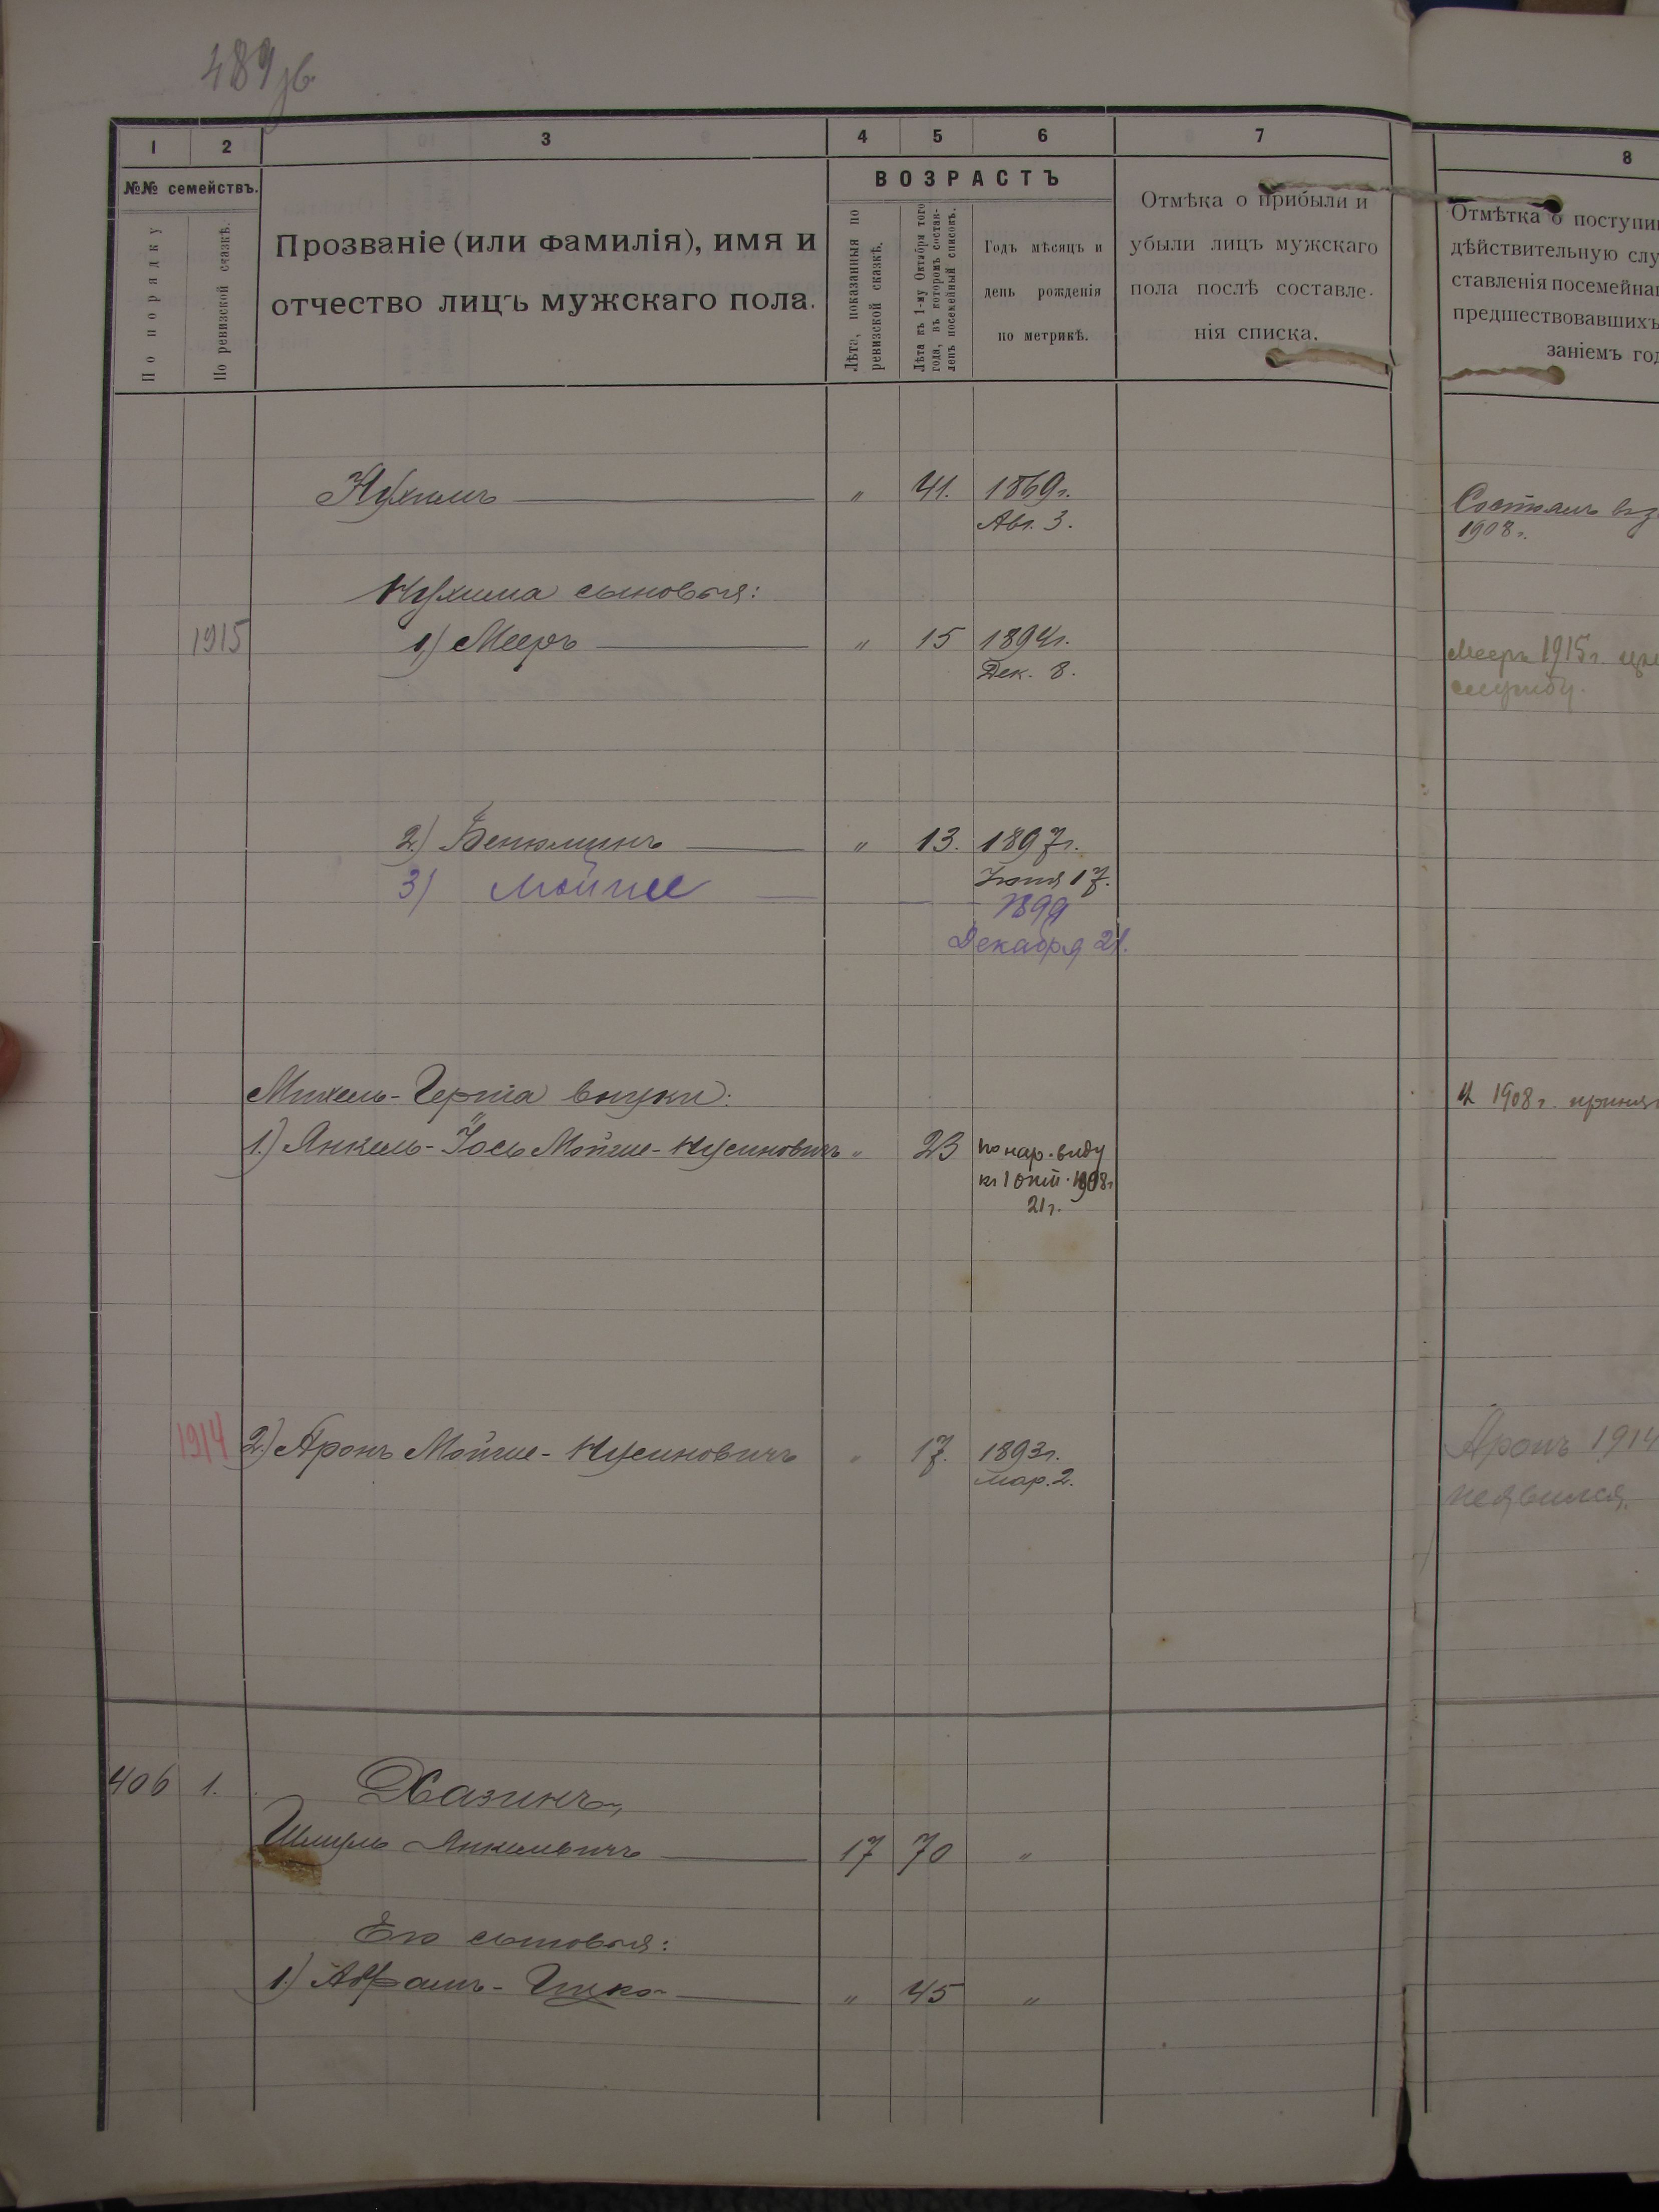 489 зв.
1 2 3 4 5 6 7 8
№№ семействъ.
По порядку
По ревизской сказкѣ.
Прозваніе (или фамилія), имя и
отчество лицъ мужскаго пола.
ВОЗРАСТЪ
Лѣта, показанныя по
ревизской сказкѣ.
Лѣта къ 1-му Октября того
года, въ которомъ состав-
ленъ посемейный списокъ.
Годъ мѣсяцъ и
день рожденія
по метрикѣ.
Отмѣка о прибыли и
убыли лицъ мужскаго
пола послѣ составле-
нія списка.
Отмѣтка о поступи
дѣйствительную слу
ставленія посемейна
предшествовавшихъ
заніемъ год
Нухимъ " 41. 1869г.
Авг. 3.
Состоялъ
1908г.
Нухима сыновья:
1915 1) Мееръ " 15 1894г.
Дек. 8.
Мееръ 1915г.
службу.
2) Беньминъ " 13. 1897г.
Іюня 17.
3) Мойше 1899
Декабря 21.
Михель-Герша внуки:
1) Янкель-Іось Мойше-Нусиновичъ " 23 по нар. виду
къ 1 окт. 1908г
21г.
1908г. приня
1914 2) Аронъ Мойше-Нусиновичъ " 17. 1893г.
Мар. 2.
Аронъ 1914
неявился.
406 1. Хазинъ,
Шмуль Янкелевичъ 17 70 "
Его сыновья:
1) Абрамъ-Ицко " 45 "